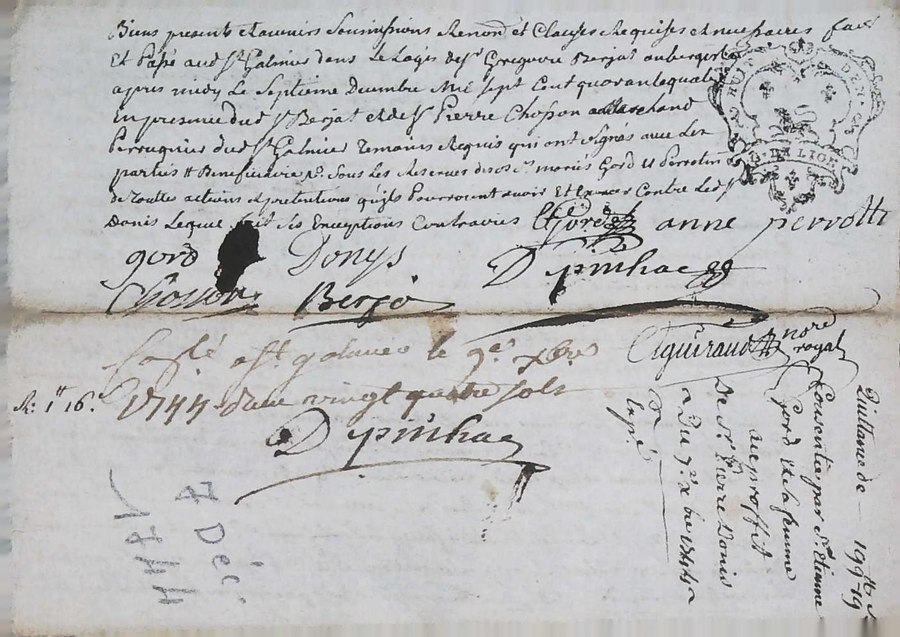 Biens presents et avenirs soumissions Renond et Clauses Requises et necessaires fait
Et Passé aud st Galmier dans Le Logis de sr Gregoire Berjat aubergiste
apres midy Le Septieme Decembre Mil Sept Cent quarante quatre
En presence dud sr Berjat et de sr Pierre Chosson Marchand
Perruquier dud st Galmier temoins Requis qui ont signes avec Les
parties Sous Les Reserves mariés Gord et Perrotin
de toutes actions et pretentions qu'ils Pourroient avoir Et Exercer Contre Led sr
Donis Lequel fait ses Exceptions Contraires
Gord anne perrotti
gord Donys Dpinhac
Chosson Berjat
CAguiraud nore royal
a st galmier le 9e xbre
R: 1tt 16s
1744 vingt quatre sols
Dpinhac
7 Déc
1744
Quittance de 199tt 19
Consentie par sr Etienne
Gord et sa femme
au proffit
De sr Pierre Donis
Du 7e xbre 1744